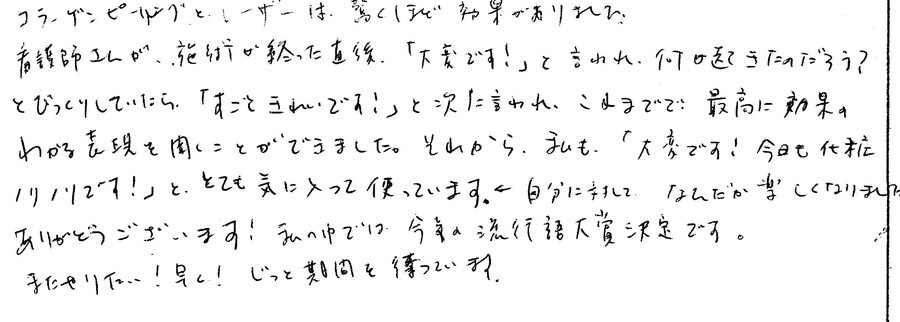 コラーゲンピーリングとレーザーは、驚くほど効果がありました。
看護師さんが、施術が終った直後、「大変です!」と言われ、何が起きたのだろう?
とびっくりしていたら、「すごくきれいです!」と次に言われ、これまでで最高に効果の
わかる表現を聞くことができました。それから、私も、「大変です!今日も化粧
ノリノリです!」と、とても気に入って使っています。←自分に対して なんだか楽しくなりました
ありがとうございます!私の中では今年の流行語大賞決定です。
またやりたい!早く!じっと期間を待っています。